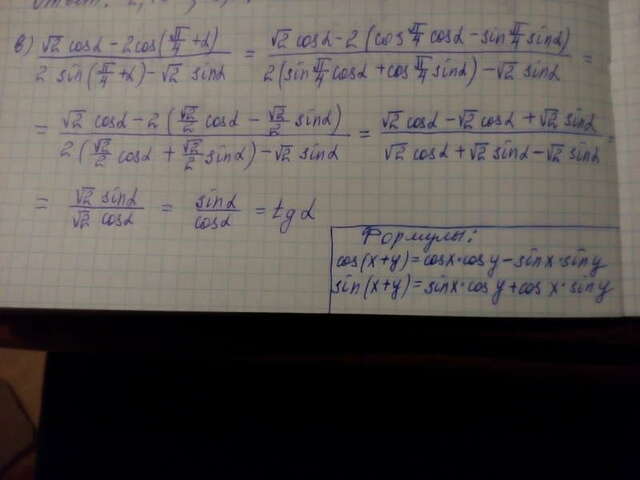 в) (√2 cosα - 2cos(π/4 + α)) / (2 sin(π/4 + α) - √2 sinα) = (√2 cosα - 2(cos π/4 cosα - sin π/4 sinα)) / (2(sin π/4 cosα + cos π/4 sinα) - √2 sinα) =
= (√2 cosα - 2(√2/2 cosα - √2/2 sinα)) / (2(√2/2 cosα + √2/2 sinα) - √2 sinα) = (√2 cosα - √2 cosα + √2 sinα) / (√2 cosα + √2 sinα - √2 sinα) =
= (√2 sinα) / (√2 cosα) = sinα / cosα = tgα
Формулы:
cos(x+y)=cosx·cosy-sinx·siny
sin(x+y)=sinx·cosy+cosx·siny